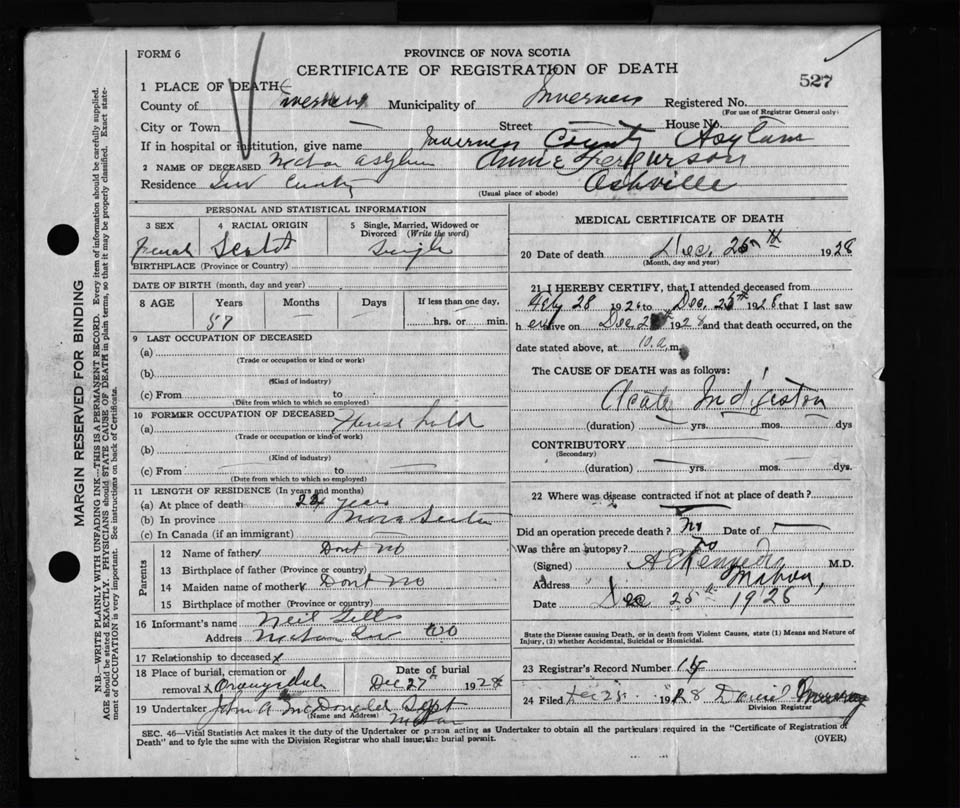 FORM 6
PROVINCE OF NOVA SCOTIA
CERTIFICATE OF REGISTRATION OF DEATH
527
1 PLACE OF DEATH
County of Inverness Municipality of Inverness Registered No.
(For use of Registrar General only)
City or Town — Street — House No.
If in hospital or institution, give name Inverness County Asylum
2 NAME OF DECEASED Asylum Annie Ferguson
Residence Inv County Ashville
(Usual place of abode)
PERSONAL AND STATISTICAL INFORMATION
3 SEX 4 RACIAL ORIGIN 5 Single, Married, Widowed or Divorced (Write the word)
Scotch Single
BIRTHPLACE (Province or Country)
DATE OF BIRTH (month, day and year)
8 AGE Years Months Days If less than one day,
57 — — hrs. or min.
9 LAST OCCUPATION OF DECEASED
(a)
(Trade or occupation or kind of work)
(b)
(Kind of industry)
(c) From to
(Date from which to which so employed)
10 FORMER OCCUPATION OF DECEASED
(a)
(Trade or occupation or kind of work)
(b)
(Kind of industry)
(c) From to
(Date from which to which so employed)
11 LENGTH OF RESIDENCE (In years and months)
(a) At place of death years
(b) In province Nova Scotia
(c) In Canada (if an immigrant)
Parents
12 Name of father Dont no
13 Birthplace of father (Province or country)
14 Maiden name of mother Dont no
15 Birthplace of mother (Province or country)
16 Informant's name Neil Gillis
Address
17 Relationship to deceased x
18 Place of burial, cremation or removal x Orangedale Date of burial Dec 27th 1928
19 Undertaker John A. McDonald Supt
(Name and Address)
MEDICAL CERTIFICATE OF DEATH
20 Date of death Dec. 25th 1928
(Month, day and year)
21 I HEREBY CERTIFY, that I attended deceased from
28 192 to Dec. 25th 1928 that I last saw
h er alive on Dec. 1928 and that death occurred, on the
date stated above, at 10. a. m.
The CAUSE OF DEATH was as follows:
Acute Indigestion
(duration) yrs. mos. dys
CONTRIBUTORY
(Secondary)
(duration) yrs. mos. dys.
22 Where was disease contracted if not at place of death?
Did an operation precede death? no Date of
Was there an autopsy? no
(Signed) A Kennedy M.D.
Address Mabou,
Date Dec 25th 1928
State the Disease causing Death, or in death from Violent Causes, state (1) Means and Nature of
Injury, (3) whether Accidental, Suicidal or Homicidal.
23 Registrar's Record Number
24 Filed 19 28 Daniel Murray
Division Registrar
SEC. 46—Vital Statistics Act makes it the duty of the Undertaker or person acting as Undertaker to obtain all the particulars required in the "Certificate of Registration of
Death" and to fyle the same with the Division Registrar who shall issue the burial permit.
(OVER)
MARGIN RESERVED FOR BINDING
N.B.—WRITE PLAINLY WITH UNFADING INK—THIS IS A PERMANENT RECORD. Every item of information should be carefully supplied.
AGE should be stated EXACTLY. PHYSICIANS should STATE CAUSE OF DEATH in plain terms, so that it may be properly classified. Exact state-
ment of OCCUPATION is very important. See instructions on back of Certificate.